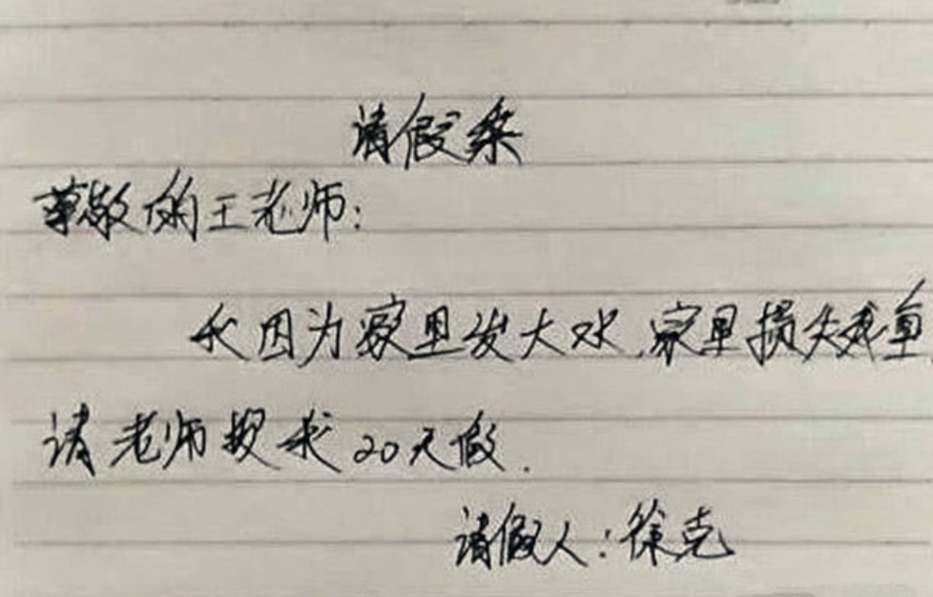 请假条
尊敬的王老师:
我因为家里发大水,家里损失残重
请老师授求20天假.
请假人:徐克